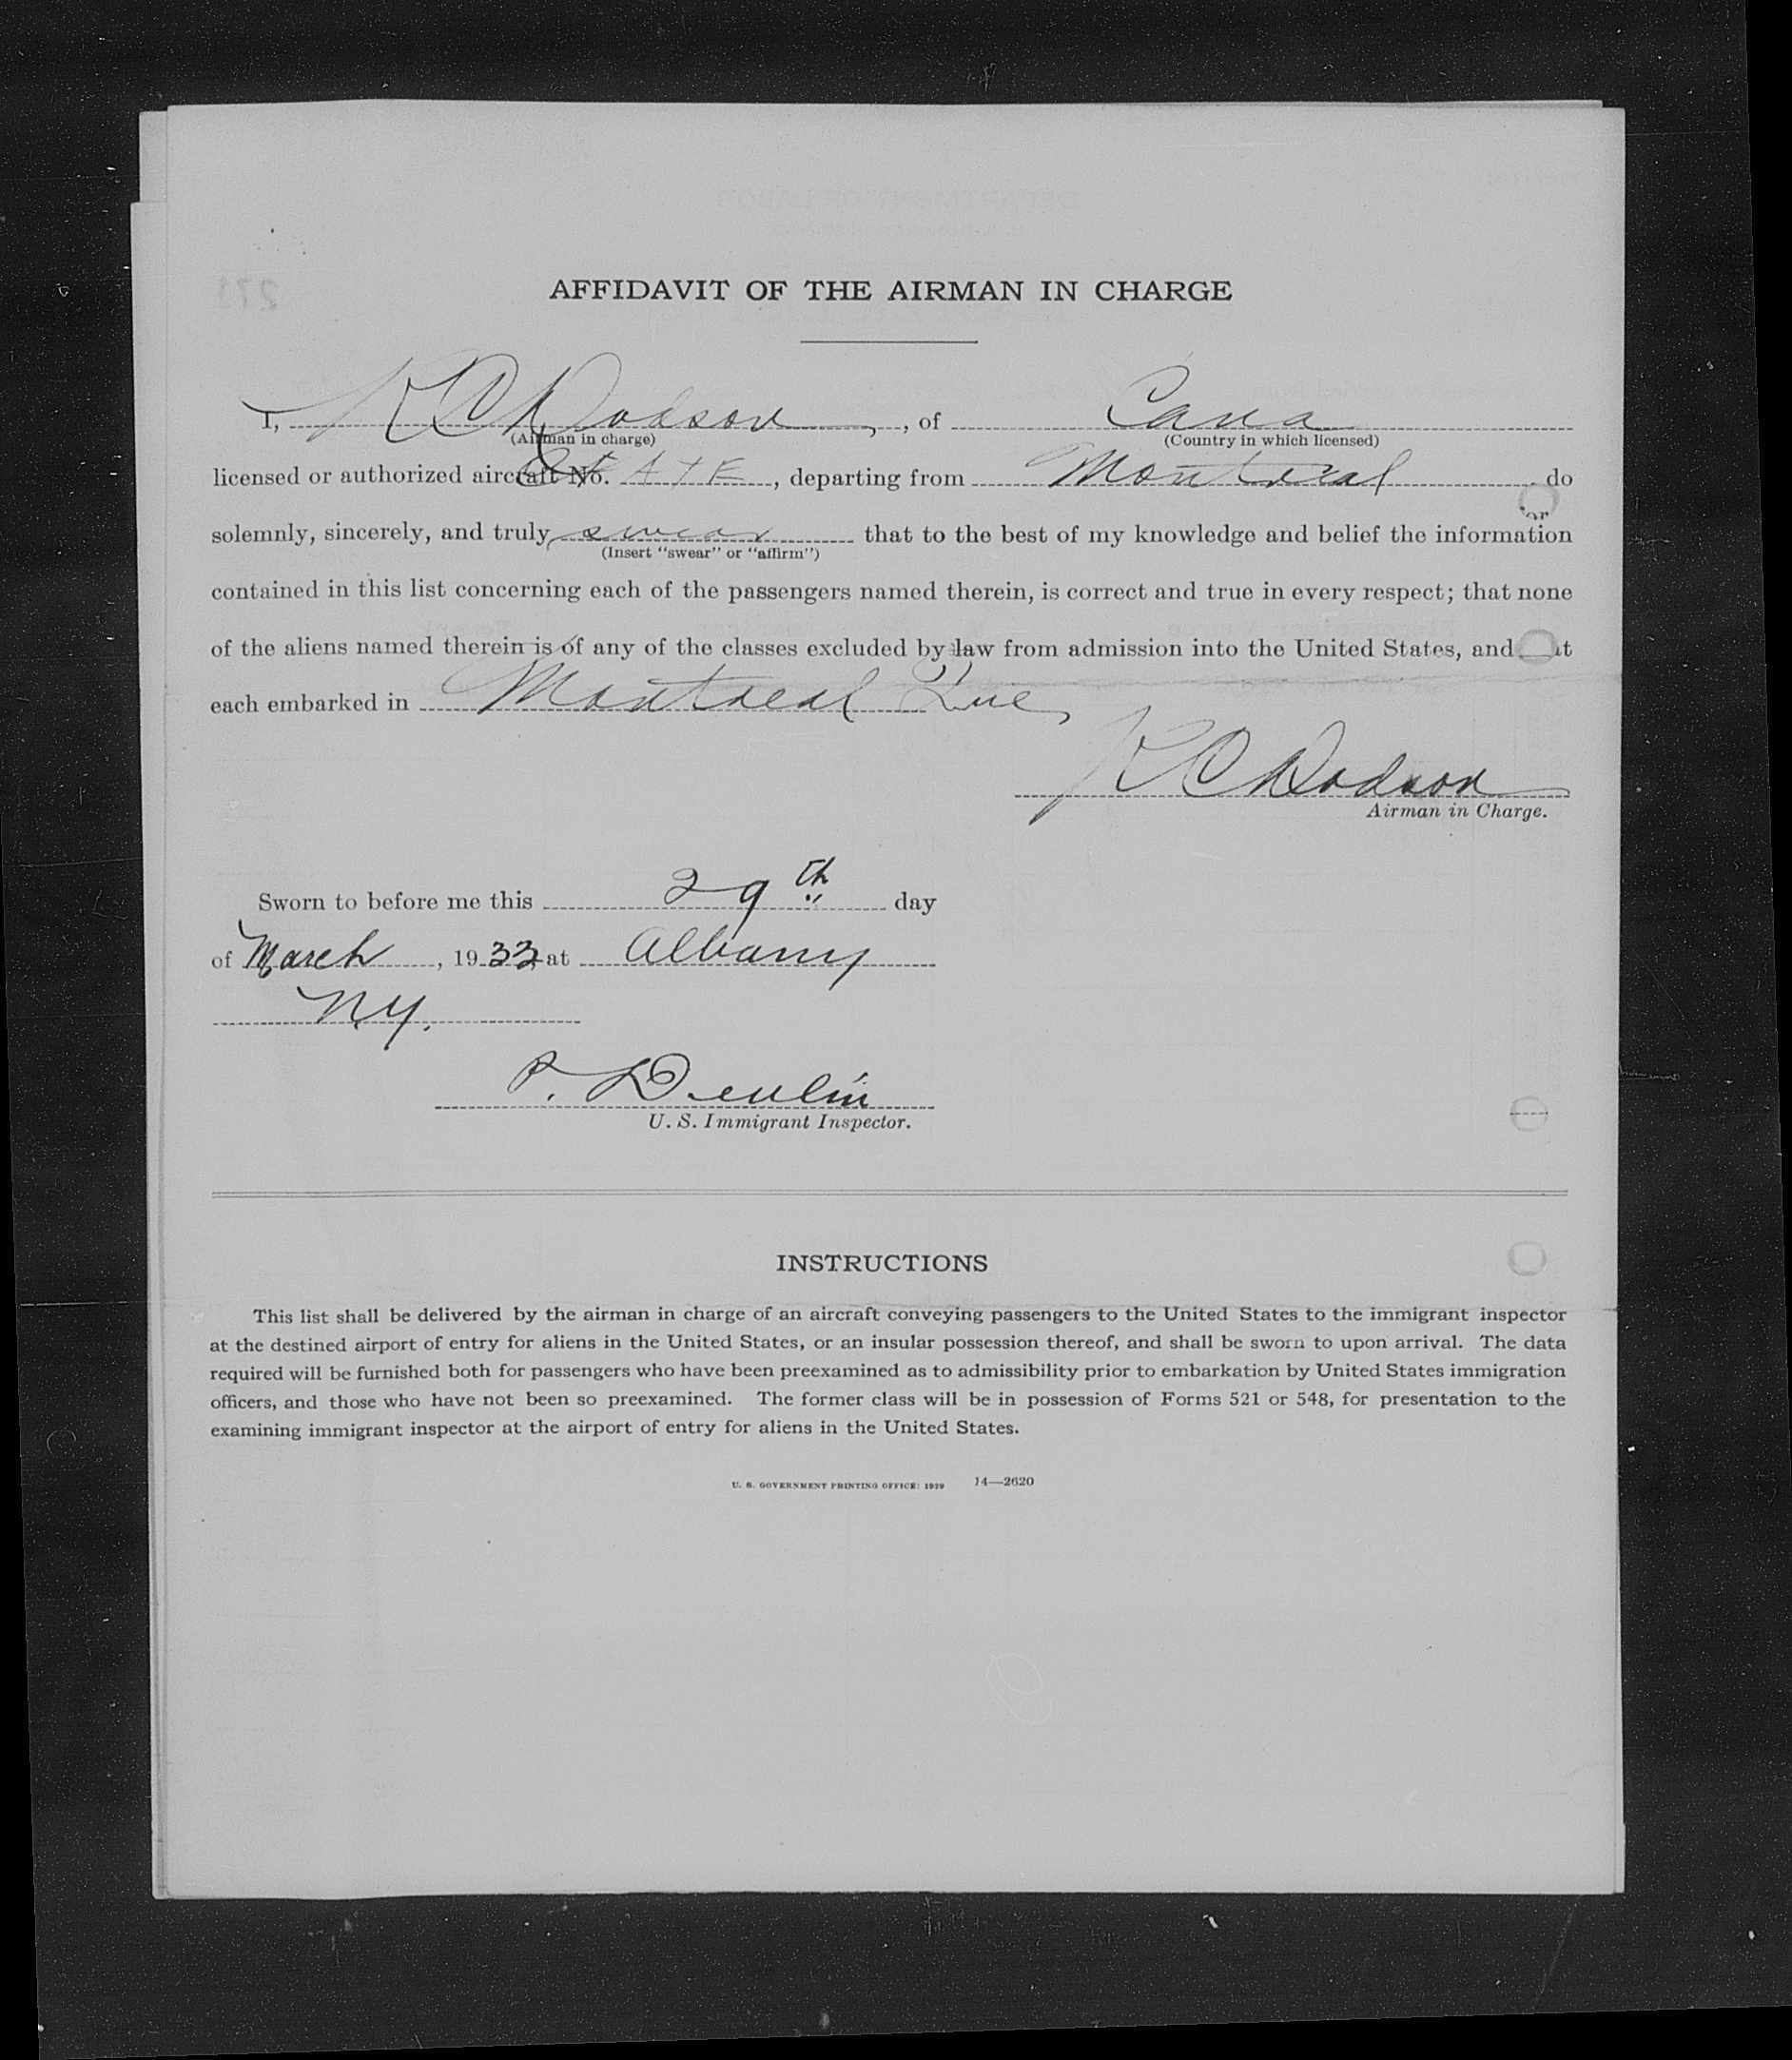 AFFIDAVIT OF THE AIRMAN IN CHARGE
I, K C Dodson, of Cana
(Airman in charge) (Country in which licensed)
licensed or authorized aircraft No. CF ATE, departing from Montreal do
solemnly, sincerely, and truly swear that to the best of my knowledge and belief the information
(Insert "swear" or "affirm")
contained in this list concerning each of the passengers named therein, is correct and true in every respect; that none
of the aliens named therein is of any of the classes excluded by law from admission into the United States, and
each embarked in Montreal Que
K C Dodson
Airman in Charge.
Sworn to before me this 29th day
of March, 1933, at Albany
N.Y.
P. Devlin
U. S. Immigrant Inspector.
INSTRUCTIONS
This list shall be delivered by the airman in charge of an aircraft conveying passengers to the United States to the immigrant inspector
at the destined airport of entry for aliens in the United States, or an insular possession thereof, and shall be sworn to upon arrival. The data
required will be furnished both for passengers who have been preexamined as to admissibility prior to embarkation by United States immigration
officers, and those who have not been so preexamined. The former class will be in possession of Forms 521 or 548, for presentation to the
examining immigrant inspector at the airport of entry for aliens in the United States.
U. S. GOVERNMENT PRINTING OFFICE: 1929 14—2620